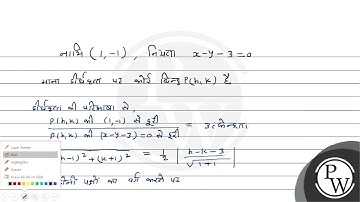 नाभि (1, -1), नियता x-y-3=0
माना दीर्घवृत्त पर कोई बिन्दु P(h,k) है,
दीर्घवृत्त की परिभाषा से,
P(h,k) की (1,-1) से दूरी
P(h,k) की (x-y-3)=0 से दूरी
= उत्केन्द्रता
h-1)² + (k+1)² = 1/2 | h-k-3 / √1+1 |
दोनों पक्षों का वर्ग करने पर
Laser Pointer
Pen
Highlighter
Eraser
PW